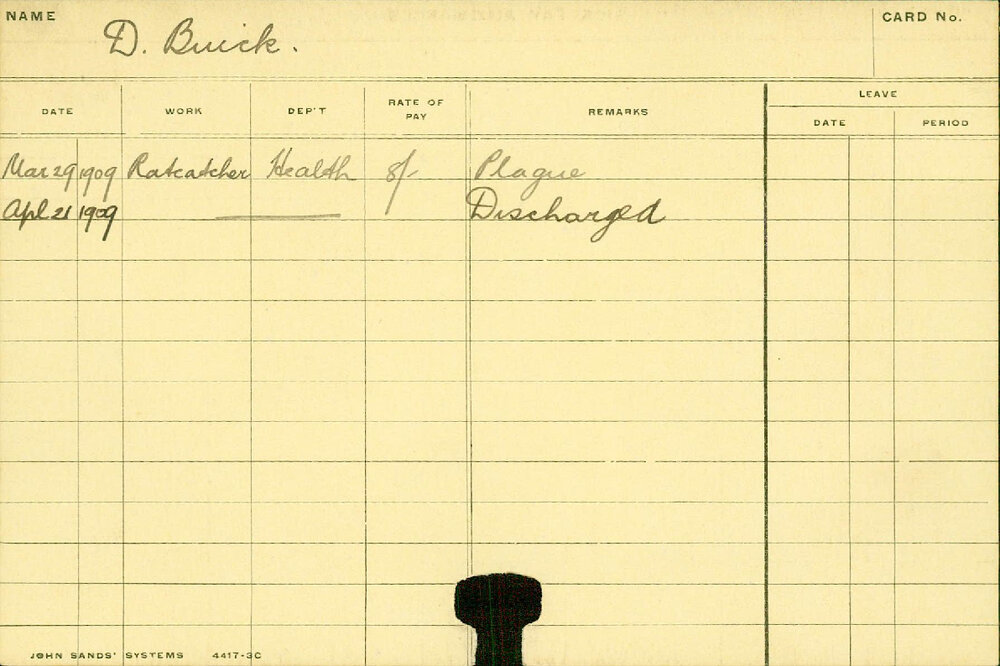 NAME
D. Buick.
CARD No.
DATE WORK DEP'T RATE OF PAY REMARKS LEAVE
DATE PERIOD
Mar 29 1909 Ratcatcher Health 8/- Plague
Apl 21 1909 Discharged
JOHN SANDS' SYSTEMS 4417-3C